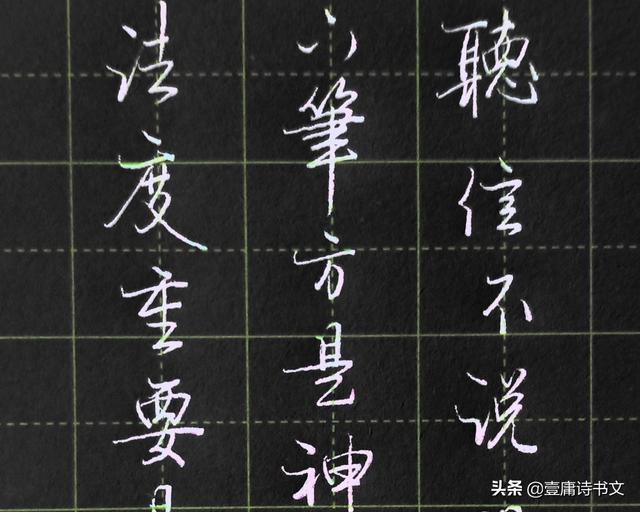 聽信不说
筆方是神
法度重要
头条 @壹庸诗书文